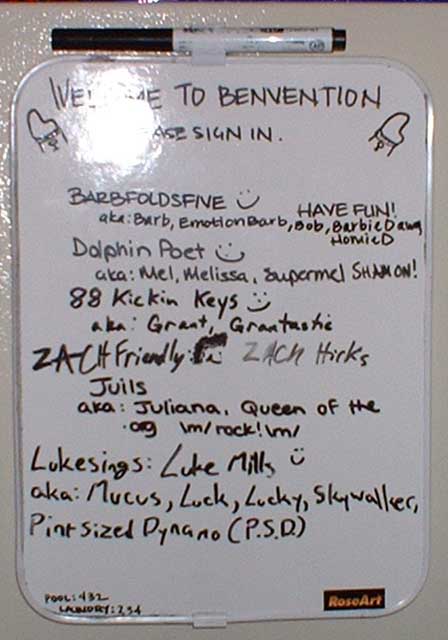 WELCOME TO BENVENTION
PLEASE SIGN IN.
BARBFOLDSFIVE
aka: Barb, EmotionBarb, Bob, Barbie Dawg
HomieD
HAVE FUN!
Dolphin Poet
aka: Mel, Melissa, Supermel SHAMON!
88 Kickin Keys
aka: Grant, Grantastic
ZACH Friendly: ZACH Hicks
Juils
aka: Juliana, Queen of the
.org \m/rock!\m/
Lukesings: Luke Mills
aka: Mucus, Luck, Lucky, Skywalker,
Pint sized Dynamo (P.S.D.)
POOL: 432
LAUNDRY: 234
RoseArt